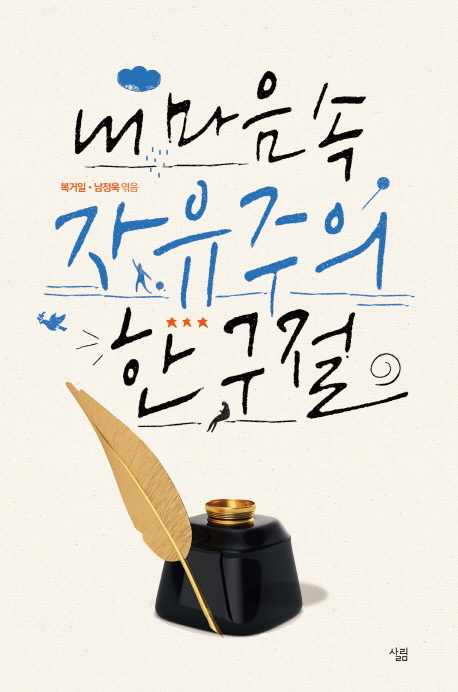 내 마음 속
복거일 • 남정욱 엮음
자유주의
한 구절
살림